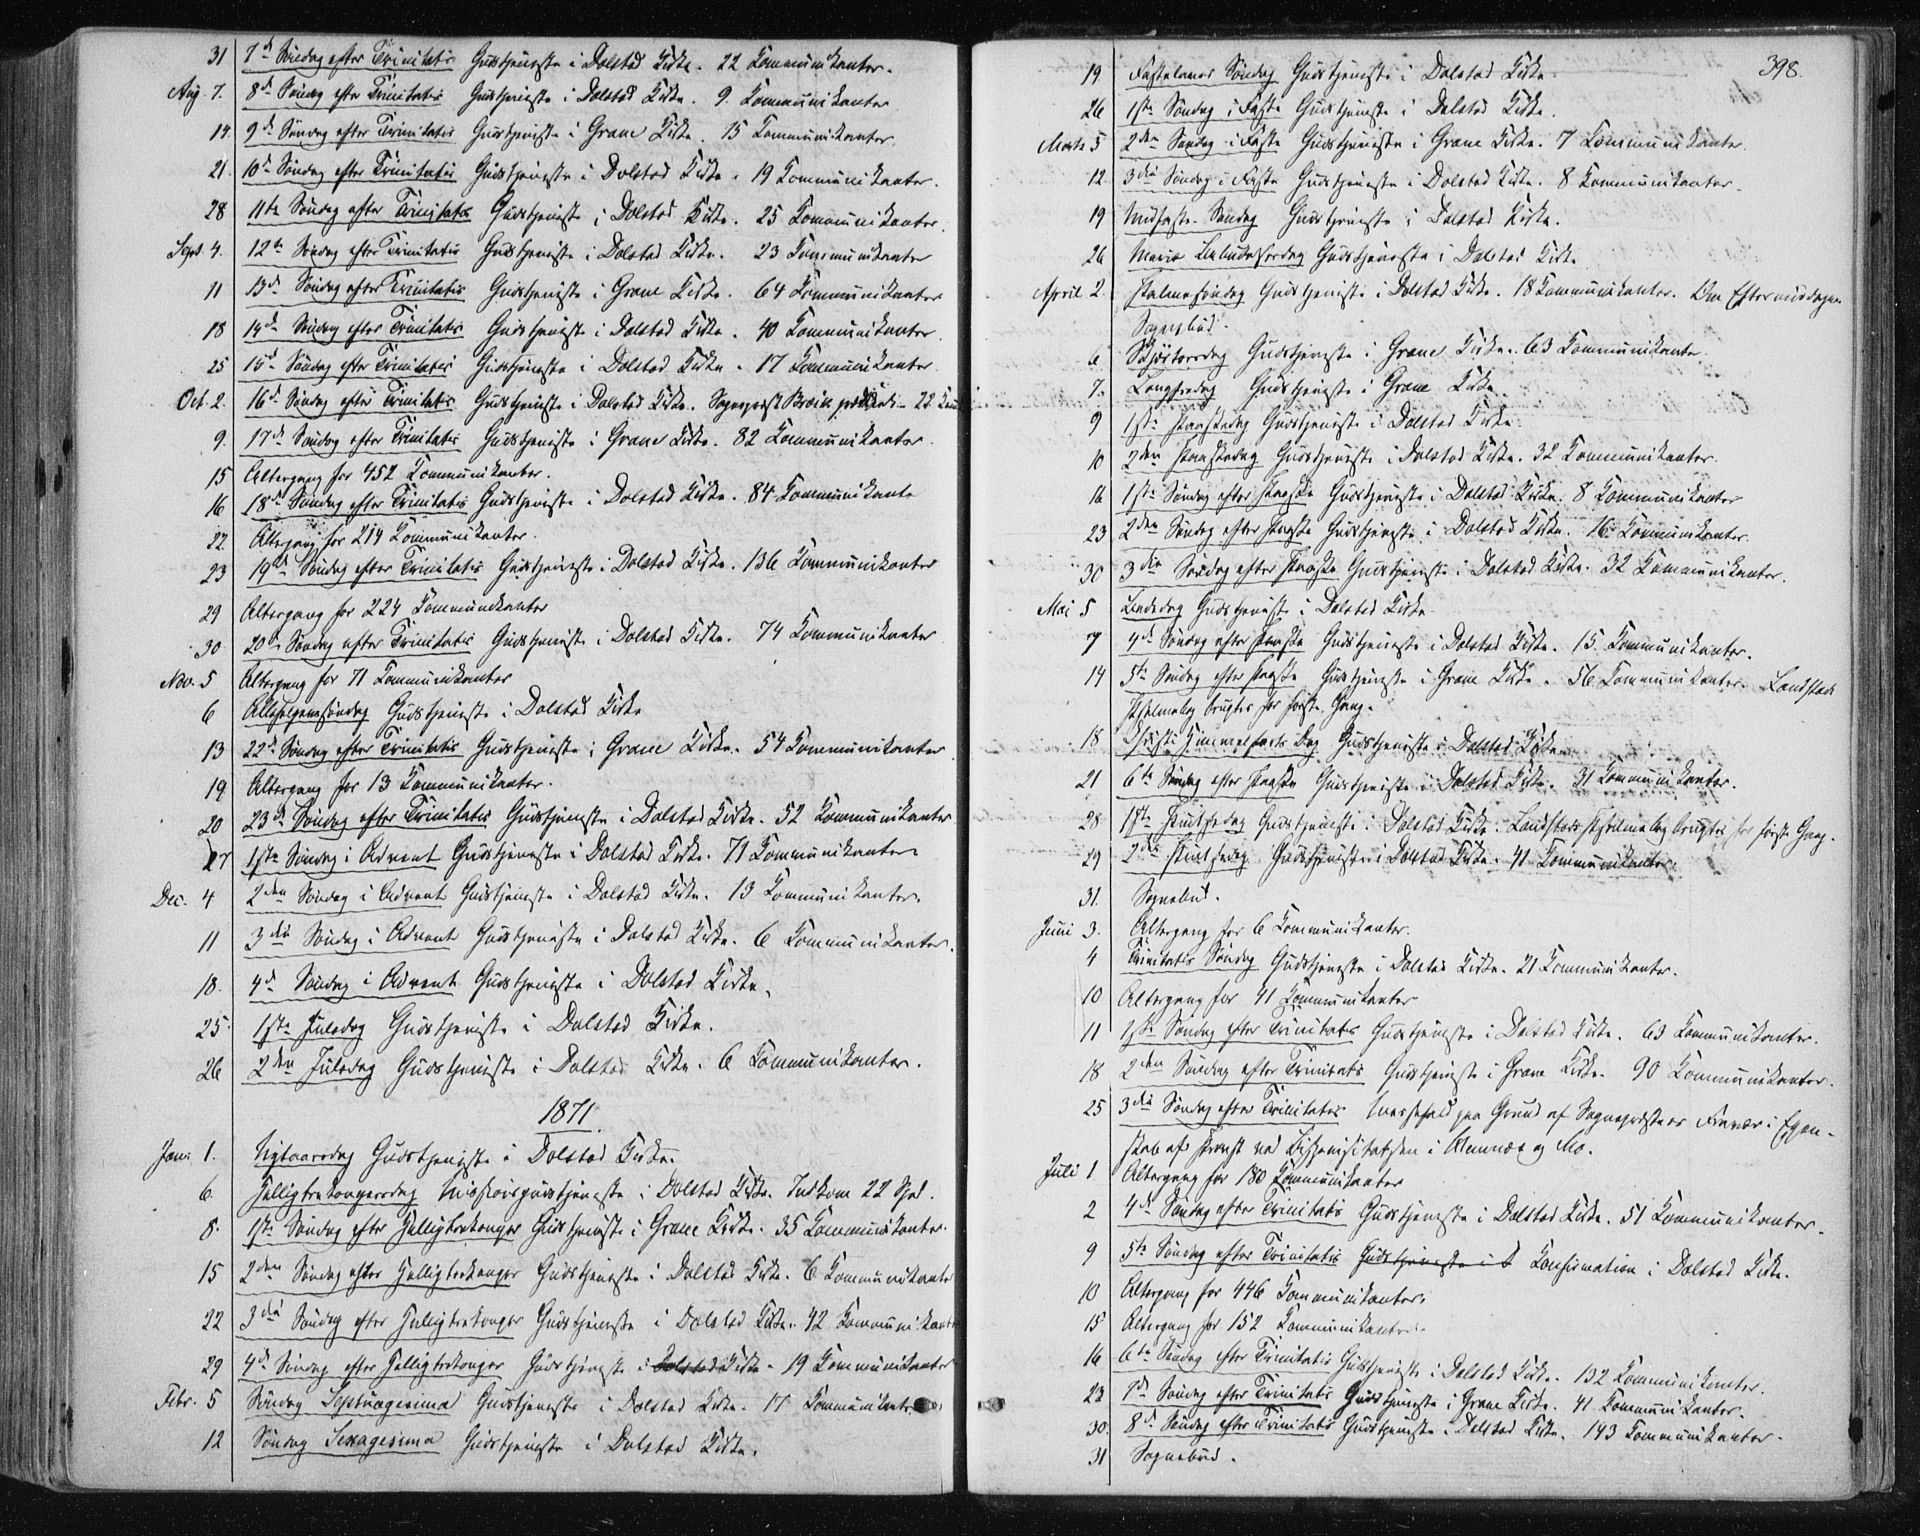 31 7de Søndag efter Trinitatis Gudstjeneste i Dolstad Kirke. 22 Kommunikanter.
Aug. 7. 8de Søndag efter Trinitatis Gudstjeneste i Dolstad Kirke. 9. Kommunikanter
14. 9de Søndag efter Trinitatis Gudstjeneste i Grane Kirke. 15 Kommunikanter.
21. 10de Søndag efter Trinitatis Gudstjeneste i Dolstad Kirke. 19 Kommunikanter.
28 11te Søndag efter Trinitatis Gudstjeneste i Dolstad Kirke. 25 Kommunikanter.
Sept. 4. 12te Søndag efter Trinitatis Gudstjeneste i Dolstad Kirke. 23 Kommunikanter
11 13de Søndag efter Trinitatis Gudstjeneste i Grane Kirke. 64 Kommunikanter
18 14de Søndag efter Trinitatis Gudstjeneste i Dolstad Kirke. 40 Kommunikanter.
25 15de Søndag efter Trinitatis Gudstjeneste i Dolstad Kirke. 17 Kommunikanter
Oct. 2. 16de Søndag efter Trinitatis Gudstjeneste i Dolstad Kirke. Sognepræst 22
9. 17de Søndag efter Trinitatis Gudstjeneste i Grane Kirke. 82 Kommunikanter.
15 Altergang for 452 Kommunikanter.
16 18de Søndag efter Trinitatis Gudstjeneste i Dolstad Kirke. 84 Kommunikante
22. Altergang for 214 Kommunikanter.
23 19de Søndag efter Trinitatis Gudstjeneste i Dolstad Kirke. 136 Kommunikanter
29 Altergang for 224 Kommunikanter
30 20de Søndag efter Trinitatis Gudstjeneste i Dolstad Kirke. 74 Kommunikanter
Nov. 5 Altergang for 71 Kommunikanter
6 Allehelgenssøndag Gudstjeneste i Dolstad Kirke
13 22de Søndag efter Trinitatis Gudstjeneste i Grane Kirke. 54 Kommunikanter
19 Altergang for 13 Kommunikanter.
20 23de Søndag efter Trinitatis Gudstjeneste i Dolstad Kirke. 52 Kommunikanter
27 1ste Søndag i Advent Gudstjeneste i Dolstad Kirke. 71 Kommunikanter
Dec. 4 2den Søndag i Advent Gudstjeneste i Dolstad Kirke. 13 Kommunikanter.
11 3die Søndag i Advent Gudstjeneste i Dolstad Kirke. 6 Kommunikanter.
18. 4de Søndag i Advent Gudstjeneste i Dolstad Kirke.
25. 1ste Juledag Gudstjeneste i Dolstad Kirke.
26 2den Juledag Gudstjeneste i Dolstad Kirke. 6 Kommunikanter.
1871.
Jan. 1. Nytaarsdag Gudstjeneste i Dolstad Kirke.
6. Helligtrekongersdag Missionsgudstjeneste i Dolstad Kirke. Indkom 22 Spd.
8. 1ste Søndag efter Helligtrekonger Gudstjeneste i Grane Kirke. 35 Kommunikanter.
15 2den Søndag efter Helligtrekonger Gudstjeneste i Dolstad Kirke. 6 Kommunikante
22 3die Søndag efter Helligtrekonger Gudstjeneste i Dolstad Kirke. 42 Kommunikant
29 4de Søndag efter Helligtrekonger Gudstjeneste i Dolstad Kirke. 19 Kommunikanter
Febr. 5 Søndag Septuagesima Gudstjeneste i Dolstad Kirke. 17 Kommunikant
12 Søndag Sexagesima Gudstjeneste i Dolstad Kirke.
398.
19 Fastelavns Søndag Gudstjeneste i Dolstad Kirke.
26 1ste Søndag i Faste Gudstjeneste i Dolstad Kirke.
Marts 5 2den Søndag i Faste Gudstjeneste i Grane Kirke. 7 Kommunikanter.
12. 3die Søndag i Faste Gudstjeneste i Dolstad Kirke. 8 Kommunikanter.
19 Midfaste Søndag Gudstjeneste i Dolstad Kirke.
26 Maria Bebudelsesdag Gudstjeneste i Dolstad Kirke
April 2. Palmesøndag Gudstjeneste i Dolstad Kirke. 18 Kommunikanter. Om Eftermiddagen
Sognebud.
6 Skjærtorsdag Gudstjeneste i Grane Kirke. 63 Kommunikanter.
7. Langfredag Gudstjeneste i Grane Kirke
9 1ste Paaskedag Gudstjeneste i Dolstad Kirke.
10 2den Paaskedag Gudstjeneste i Dolstad Kirke. 32 Kommunikanter.
16 1ste Søndag efter Paaske Gudstjeneste i Dolstad Kirke. 8 Kommunikanter
23 2den Søndag efter Paaske Gudstjeneste i Dolstad Kirke. 16 Kommunikanter.
30 3die Søndag efter Paaske Gudstjeneste i Dolstad Kirke. 32 Kommunikanter.
Mai 5 Bededag Gudstjeneste i Dolstad Kirke.
7 4de Søndag efter Paaske Gudstjeneste i Dolstad Kirke. 15. Kommunikanter.
14 5te Søndag efter Paaske Gudstjeneste i Grane Kirke. 56 Kommunikanter. Landstads
Psalmebog brugtes for første Gang.
18 Christi Himmelfarts Dag Gudstjeneste i Dolstad Kirke.
21 6te Søndag efter Paaske Gudstjeneste i Dolstad Kirke. 31 Kommunikanter.
28 1ste Pintsedag Gudstjeneste i Dolstad Kirke. Landstads Psalmebog brugtes for første Gang.
29 2den Pintsedag Gudstjeneste i Dolstad Kirke. 41 Kommunikanter.
31. Sognebud.
Juni 3. Altergang for 6 Kommunikanter.
4 Trinitatis Søndag Gudstjeneste i Dolstad Kirke. 21 Kommunikanter.
10 Altergang for 41 Kommunikanter
11 1ste Søndag efter Trinitatis Gudstjeneste i Dolstad Kirke. 63 Kommunikanter.
18 2den Søndag efter Trinitatis Gudstjeneste i Grane Kirke. 90 Kommunikanter.
25 3die Søndag efter Trinitatis Messefald paa Grund af Sognepræstens Fravær i Egen-
skab af Provst ved Bispevisitatsen i Hemnæs og Mo.
Juli 1 Altergang for 180 Kommunikanter
2 4de Søndag efter Trinitatis Gudstjeneste i Dolstad Kirke. 51 Kommunikanter.
9 5te Søndag efter Trinitatis Gudstjeneste i D Konfirmation i Dolstad Kirke.
10 Altergang for 446 Kommunikanter.
15 Altergang for 152 Kommunikanter.
16 6te Søndag efter Trinitatis Gudstjeneste i Dolstad Kirke. 132 Kommunikanter.
23 7de Søndag efter Trinitatis Gudstjeneste i Grane Kirke. 41 Kommunikanter.
30. 8de Søndag efter Trinitatis Gudstjeneste i Dolstad Kirke. 143 Kommunikanter.
31 Sognebud.